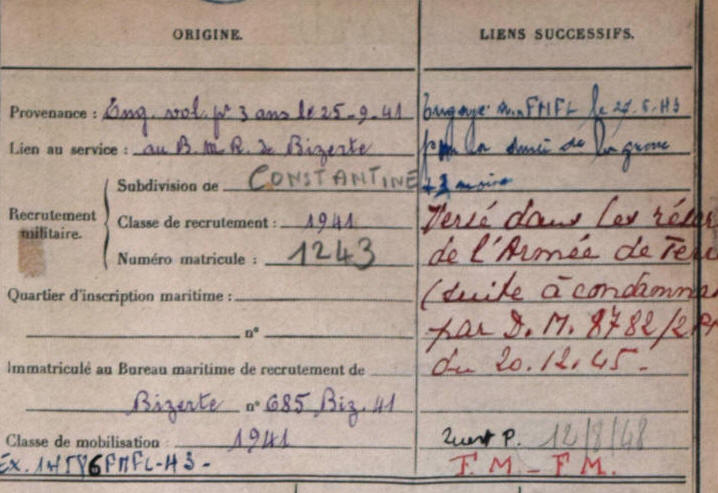 ORIGINE.
Provenance : Eng. vol. pr 3 ans le 25-9-41
Lien au service : au B. M. R. de Bizerte
Subdivision de CONSTANTINE
Recrutement militaire.
Classe de recrutement : 1941
Numéro matricule : 1243
Quartier d'inscription maritime :
n°
Immatriculé au Bureau maritime de recrutement de
Bizerte n° 685 Biz. 41
Classe de mobilisation : 1941
FMFL-43-
LIENS SUCCESSIFS.
Engagé FNFL le
pour la durée de la guerre
+ 3 mois
Versé dans les
de l'Armée de
(suite à
par D. M. 8782/2
du 20.12.45-
P. 12/8/48
F. M. - F M.